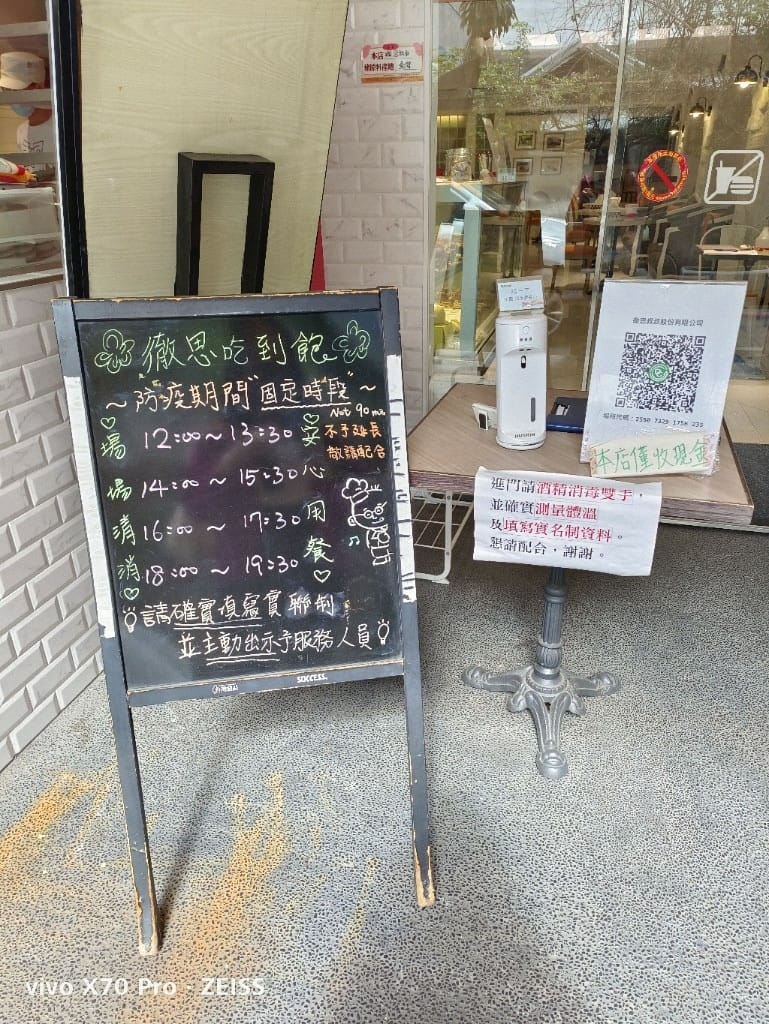 徹思吃到飽
~"防疫期間"固定時"段"~
Not 90 min
不予延長
敬請配合
場 12:00~13:30 安
場 14:00~15:30 心
清 16:00~17:30 用
消 18:00~19:30 餐
請確實填寫實聯制
並主動出示予服務人員
SUCCESS.
本店
股份有限公司
場所代碼:2550 7329 1754 233
本店僅收現金
進門請酒精消毒雙手,
並確實測量體溫
及填寫實名制資料。
懇請配合,謝謝。
vivo X70 Pro · ZEISS